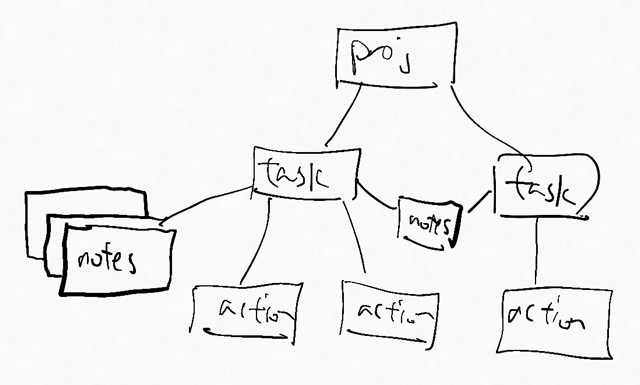 proj
task
task
notes
notes
action
action
action